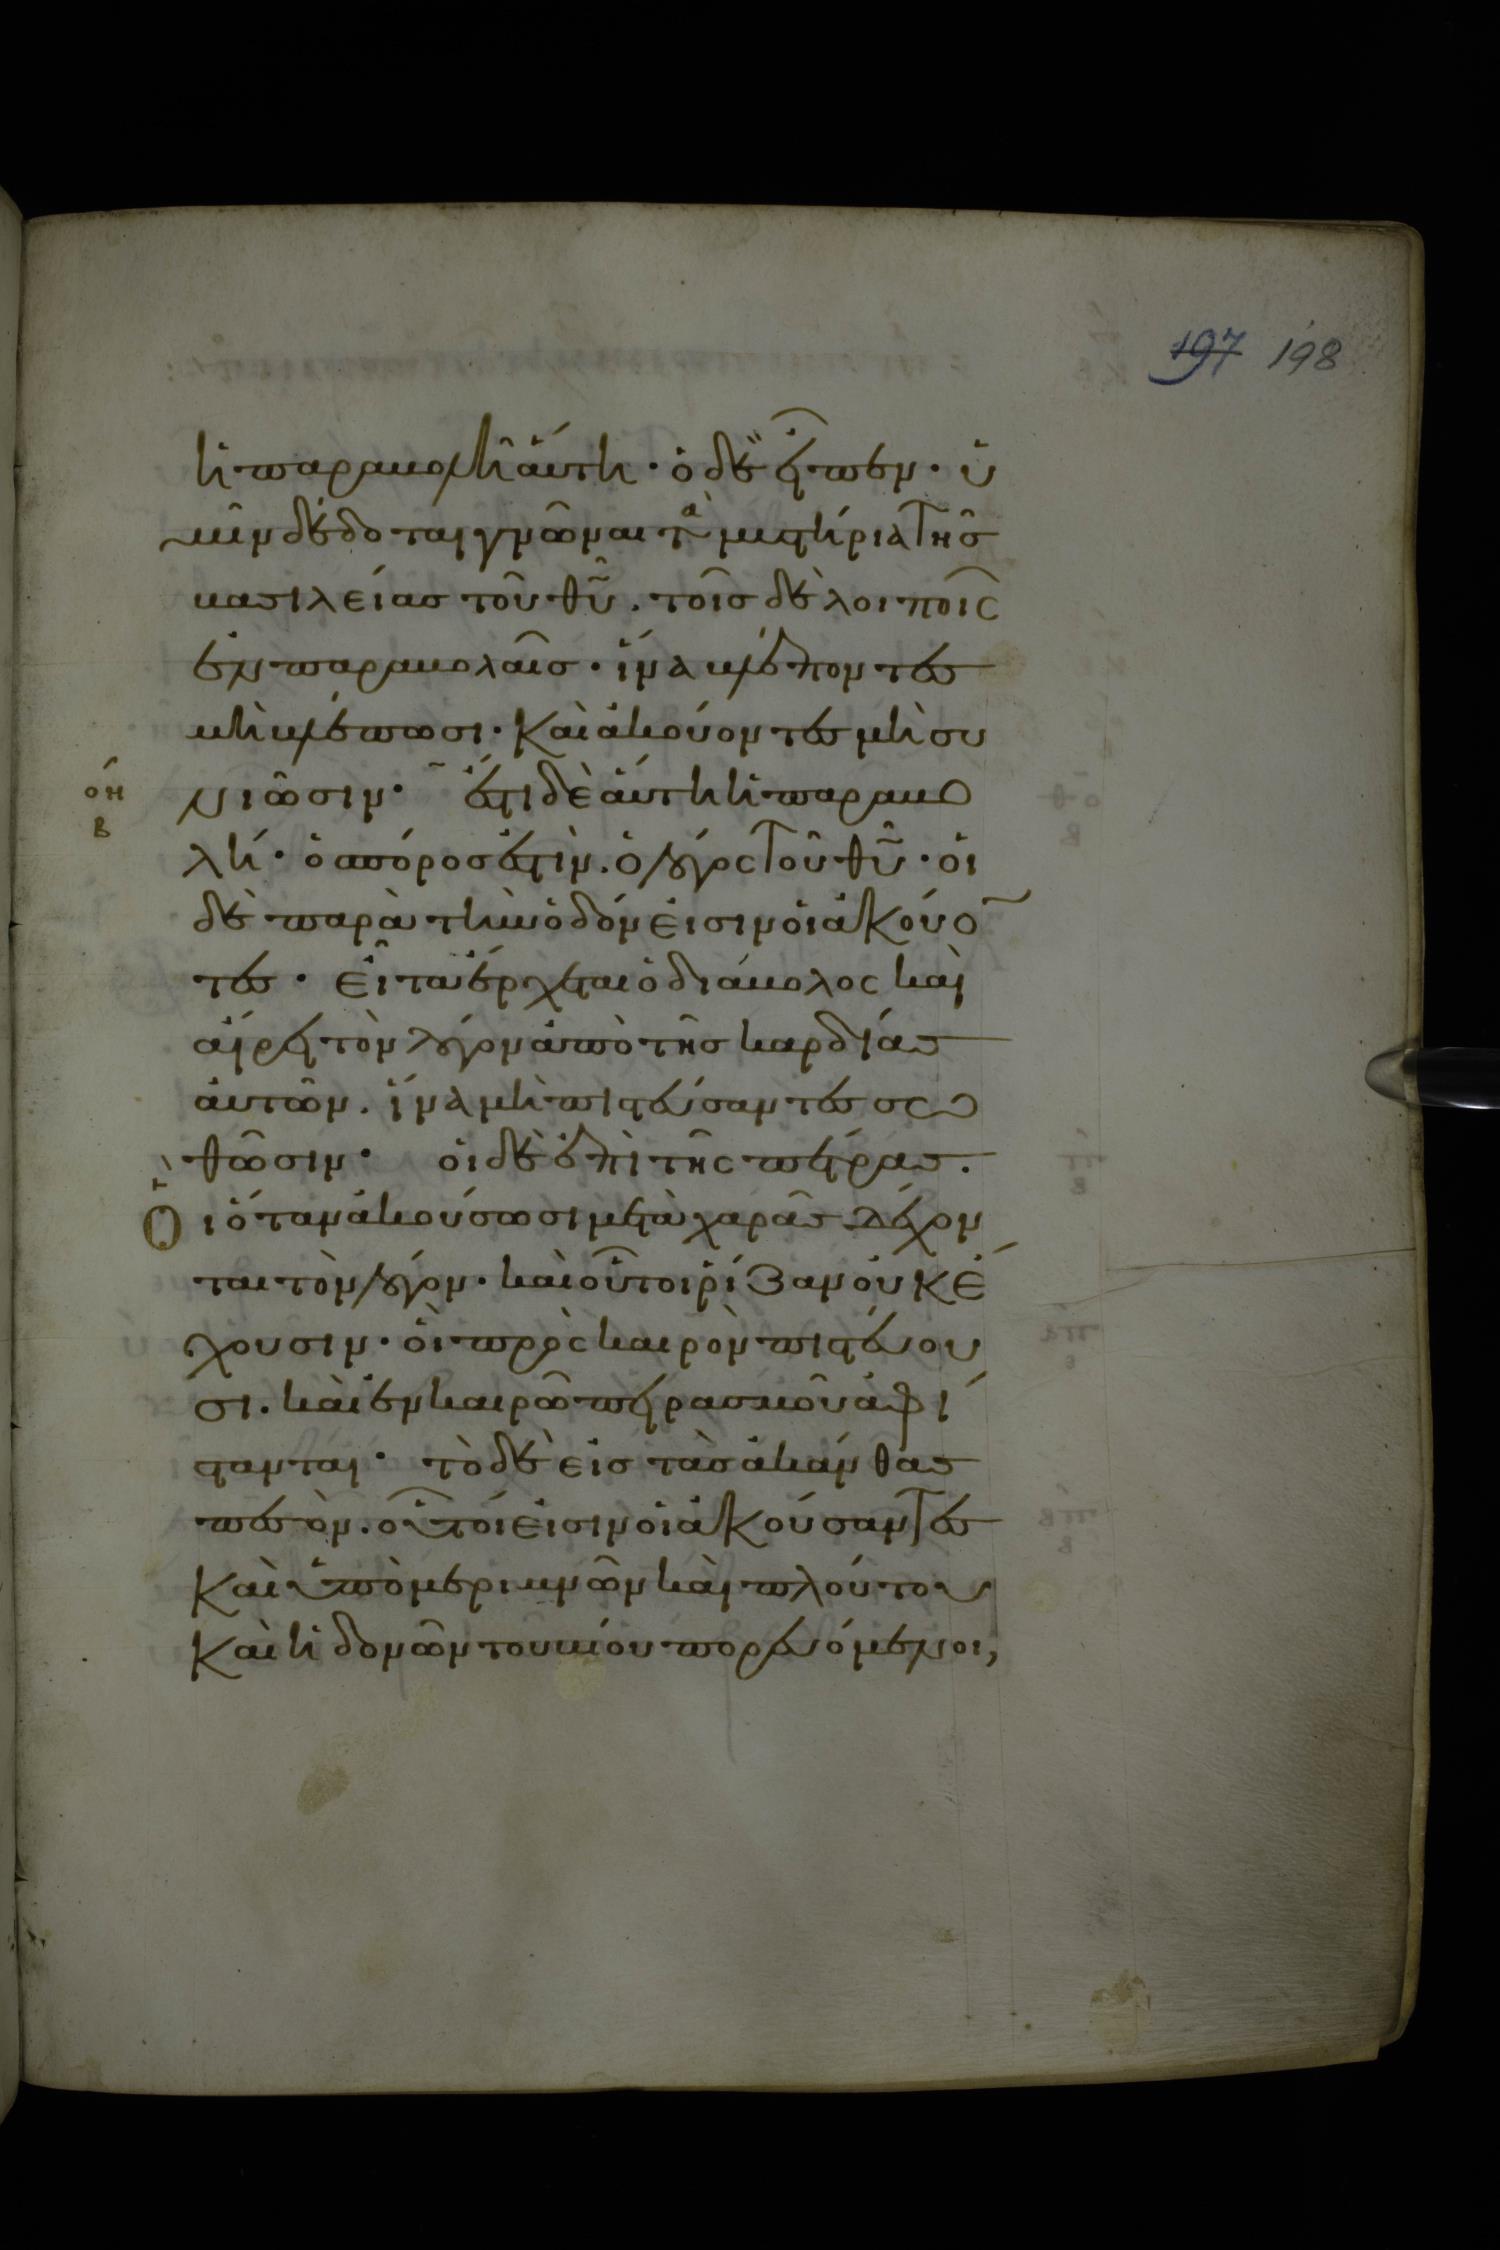 197 198
ἡ παραβολὴ ἁύτη · ὁ δὲ εἶπεν · ὑ
μῖν δέδοται γνῶναι τὰ μυστήρια τῆς
βασιλείας τοῦ θῦ . τοῖς δὲ λοιποῖς
ἐν παραβολαῖς · ἵνα βλέποντες
μὴ βλέπωσι · καὶ ἀκούοντες μὴ συ
νιῶσιν · ἔστι δὲ ἁύτη ἡ παραβο
οη
β
λή · ὁ σπόρος ἐστὶν . ὁ λόγος τοῦ θῦ · οἱ
δὲ παρὰ τὴν ὁδόν εἰσιν οἱ ἀκούο
τες · εἶτα ἔρχεται ὁ διάβολος καὶ
αἴρει τὸν λόγον ἀπὸ τῆς καρδίας
ἀυτῶν . ἵνα μὴ πιστεύσαντες σω
θῶσιν · οἱ δὲ ἐπὶ τῆς πέτρας .
Οἱ ὅταν ἀκούσωσι μετὰ χαρᾶς δέχον
ται τὸν λόγον · καὶ οὗτοι ῥίζαν οὐκ ἔ
χουσιν · οἱ πρὸς καιρὸν πιστεύου
σι . καὶ ἐν καιρῶ πειρασμοῦ ἀφί
στανται · τὸ δὲ εἰς τὰς ἀκάνθας
πεσὸν . οὗτοί εἰσιν οἱ ἀκούσαντες
καὶ ὑπὸ μεριμνῶν καὶ πλούτου
καὶ ἡδονῶν του βίου πορευόμενοι,